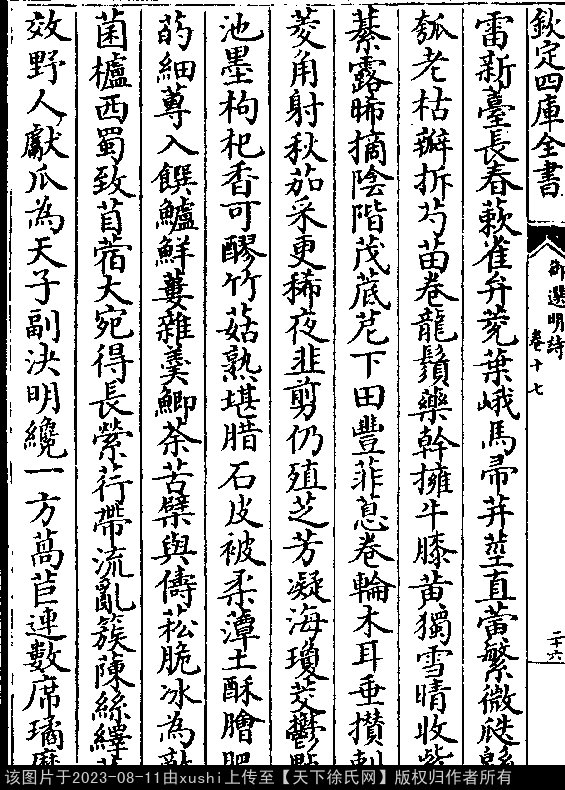 欽定四庫全書
御選明詩
卷十七
二十六
雷新薹長春蔌雀弁菀葉峨馬帚茾莖直蕾繁微㼐
瓠老枯瓣拆芍苗卷龍鬚藥幹擁牛膝黄獨雪晴收紫
綦露晞摘陰階茂菧苨下田豐菲蒠卷輪木耳垂攅刺
菱角射秋茄采更稀夜韭剪仍殖芝芳凝海瓊芰鬱黟
池墨枸杞香可醪竹菇熟堪腊石皮被柔潭土酥膾肥
菂細蓴入饌鱸鮮蔞雜羮鯽荼苦櫱與儔菘脆冰為敵
菌櫨西蜀致苜蓿大宛得長縈荇帶流亂簇陳絲繹
效野人獻瓜為天子副決明纔一方萵苣連數席璚糜
该图片于2023-08-11由xushi上传至【天下徐氏网】版权归作者所有